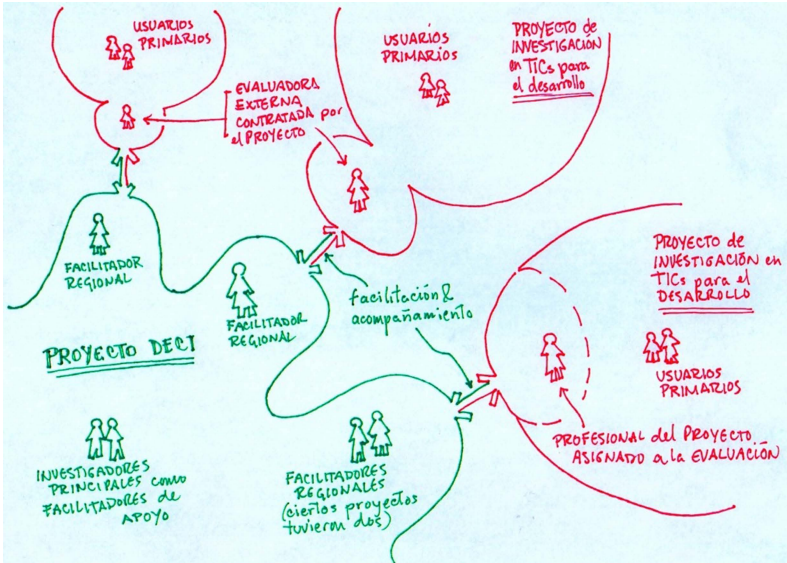 USUARIOS
PRIMARIOS
EVALUADORA
EXTERNA
CONTRATADA por
el PROYECTO
USUARIOS
PRIMARIOS
PROYECTO de
INVESTIGACIÓN
en TICs para
el desarrollo
FACILITADOR
REGIONAL
FACILITADOR
REGIONAL
facilitación &
acompañamiento
PROYECTO de
INVESTIGACIÓN en
TICs para el
DESARROLLO
USUARIOS
PRIMARIOS
PROFESIONAL del PROYECTO
ASIGNADO a la EVALUACIÓN
PROYECTO DECI
INVESTIGADORES
PRINCIPALES como
FACILITADORES de
APOYO
FACILITADORES
REGIONALES
(ciertos proyectos
tuvieron dos)